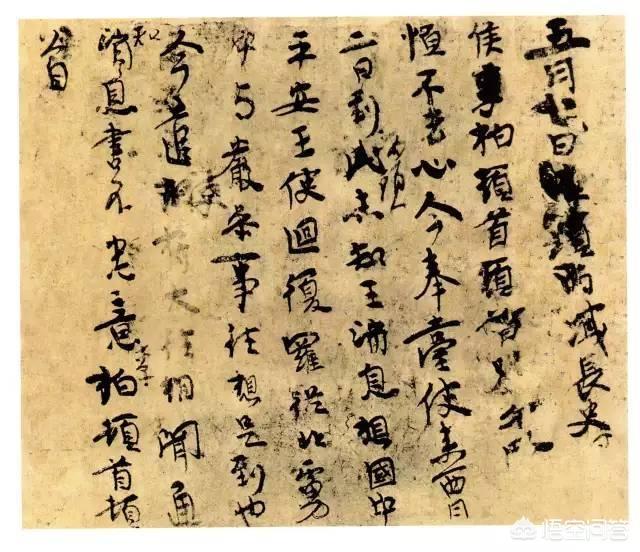 五月七日頭西域長史
侯李柏頓首頓首別
恒不去心今奉臺使來西月
二日到此未知王消息想國中
平安王使迴復羅從北虜
中与嚴參事往想是到也
今遣使符大往相聞通
知消息書不悉意李柏頓首頓
首
悟空问答